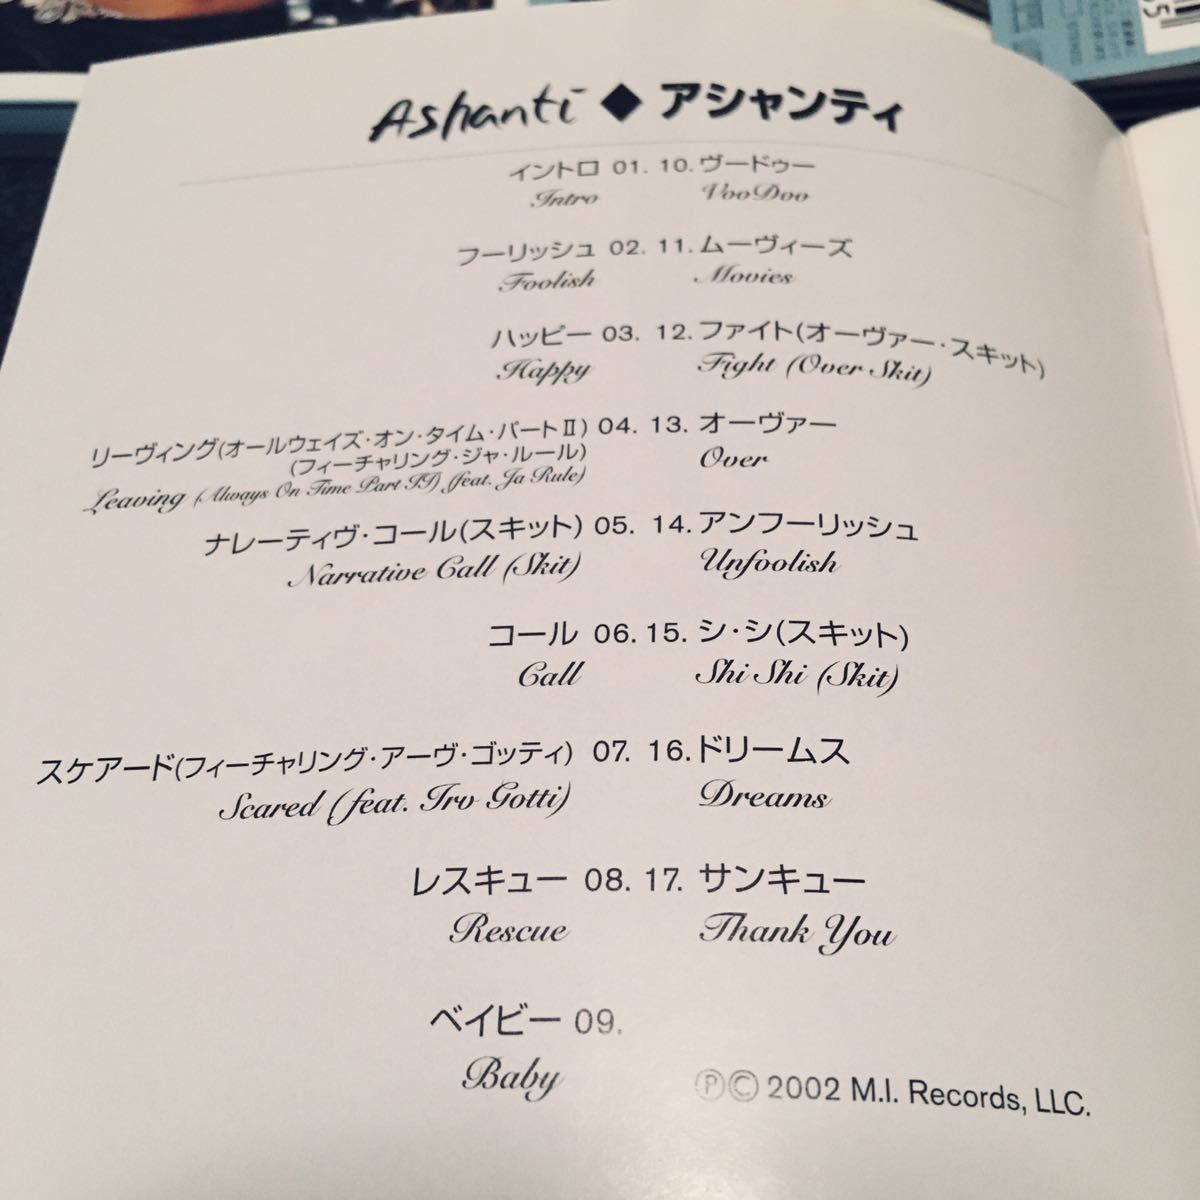 Ashanti ◆ アシャンティ
イントロ 01.
Intro
フーリッシュ 02.
Foolish
ハッピー 03.
Happy
リーヴィング(オールウェイズ・オン・タイム・パートⅡ) 04.
(フィーチャリング・ジャ・ルール)
Leaving (Always On Time Part II) (feat. Ja Rule)
ナレーティヴ・コール(スキット) 05.
Narrative Call (Skit)
コール 06.
Call
スケアード(フィーチャリング・アーヴ・ゴッティ) 07.
Scared (feat. Irv Gotti)
レスキュー 08.
Rescue
ベイビー 09.
Baby
10. ヴードゥー
VooDoo
11. ムーヴィーズ
Movies
12. ファイト(オーヴァー・スキット)
Fight (Over Skit)
13. オーヴァー
Over
14. アンフーリッシュ
Unfoolish
15. シ・シ(スキット)
Shi Shi (Skit)
16. ドリームス
Dreams
17. サンキュー
Thank You
℗© 2002 M.I. Records, LLC.